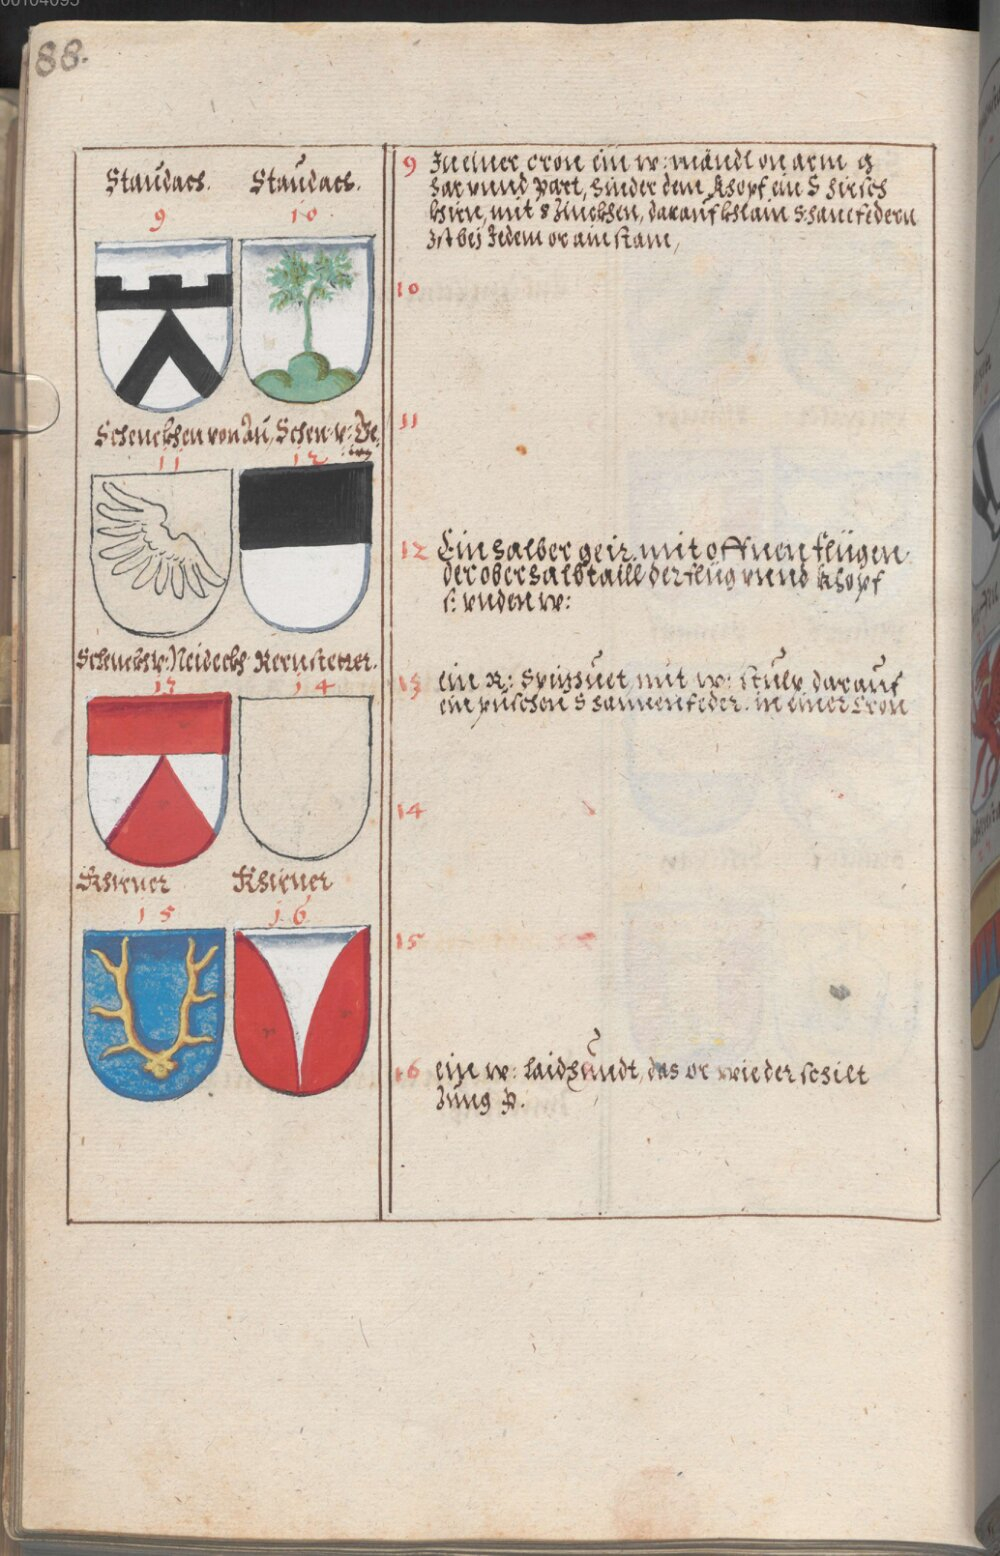 00104095
88.
Staudach. Staudach.
9 10
Schenckhen von Au, Schen: v:
11 12
Schenckh v: Neideckh Kernstetter.
13 14
Khirner Khirner
15 16
9 In einer Cron ein w: mändl on arm g
har vnnd part, hinder dem khopf ein S hirsch
khirn, mit 8 Zinckhen, darauf khlain S hanefedern
Ist bej Jedem or ain stam,
10
11
12 Ein halber geir mit offnen flügen
der ober halb taill der flüg vnnd khopf
s: vnden w:
13 ein R: Spizhuet mit w: stulp darauf
ein puschen S hannenfeder. in einer Cron
14
15
16 ein w: laidhundt, das or wie der schilt
Zung